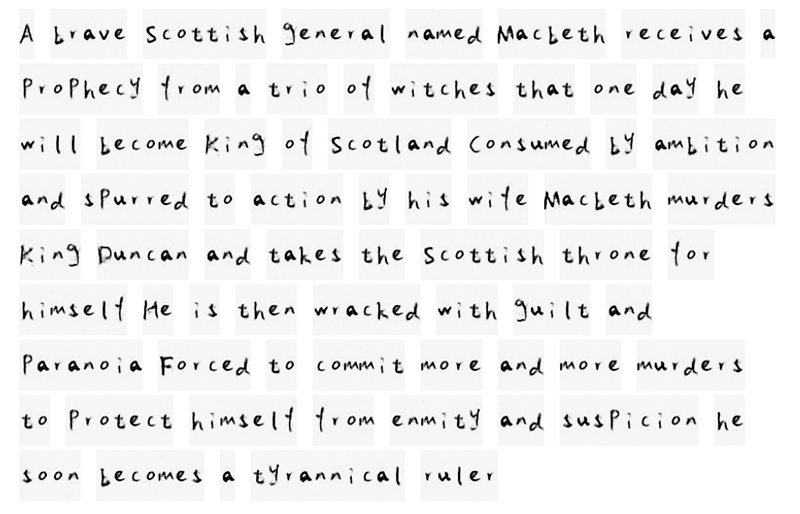 A brave Scottish general named Macbeth receives a
Prophecy from a trio of witches that one day he
will become King of Scotland Consumed by ambition
and spurred to action by his wife Macbeth murders
King Duncan and takes the Scottish throne for
himself He is then wracked with guilt and
Paranoia Forced to commit more and more murders
to Protect himself from enmity and suspicion he
soon becomes a tyrannical ruler